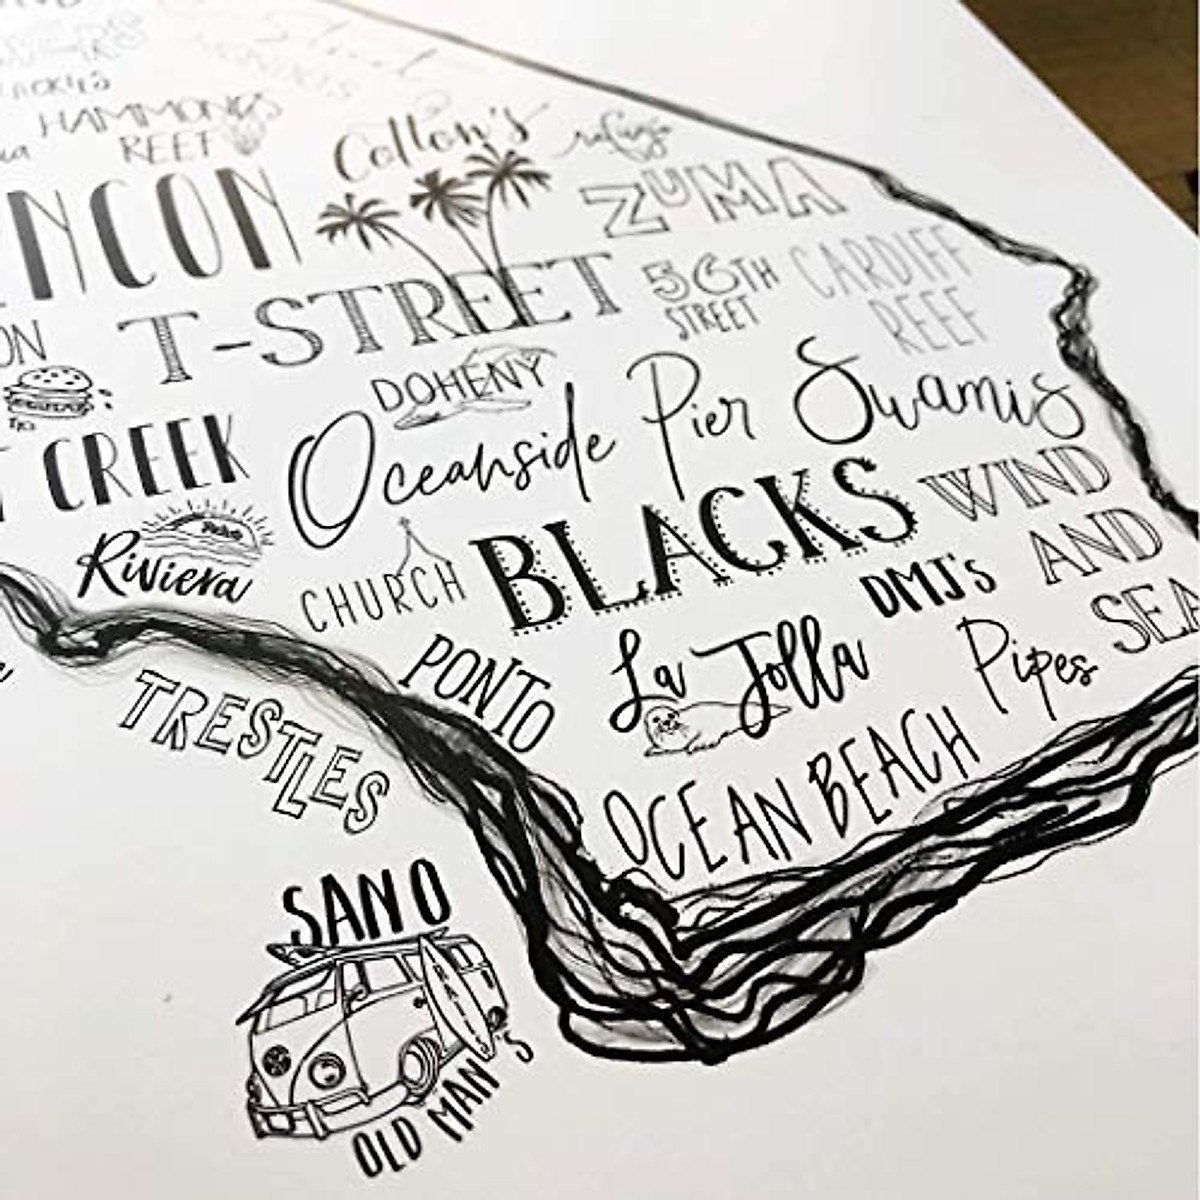 HAMMONDS
REEF
NCON
Cotton's
ZUMA
T-STREET
56TH
STREET
CARDIFF
REEF
DOHENY
CREEK
Oceanside Pier
Swamis
Riviera
CHURCH
BLACKS
WIND
AND
SEA
DMJ's
PONTO
La Jolla
Pipes
TRESTLES
OCEAN BEACH
SAN O
OLD MAN'S